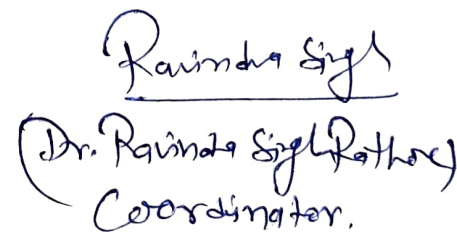 Ravindra Singh
(Dr. Ravindra Singh Rathore)
Coordinator.